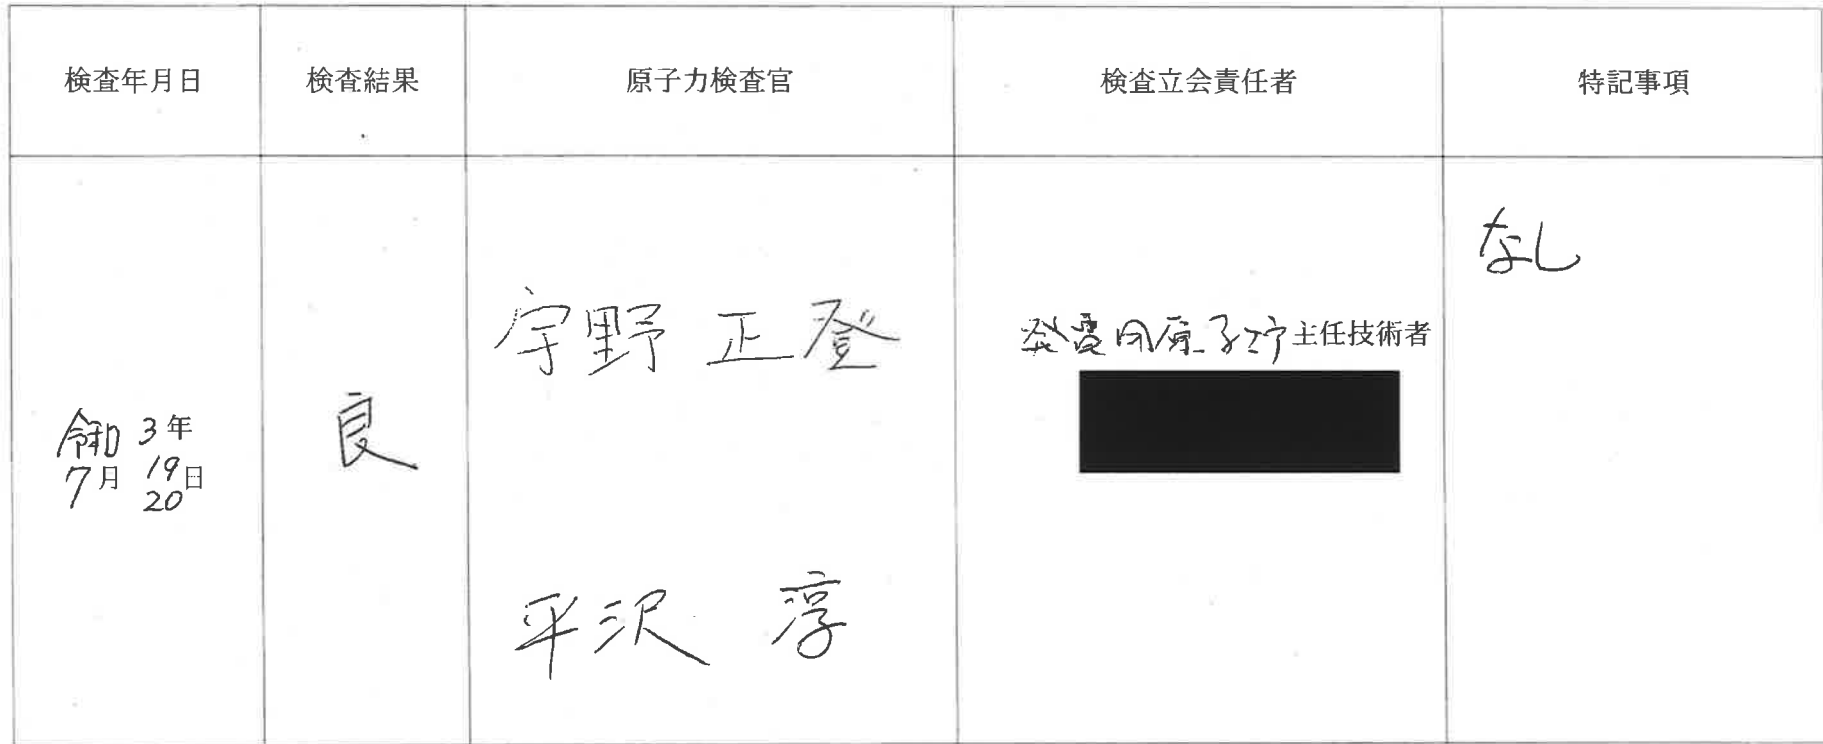 検査年月日
検査結果
原子力検査官
検査立会責任者
特記事項
令和3年
7月19日
20
良
宇野 正登
平沢 淳
発電用原子炉主任技術者
なし